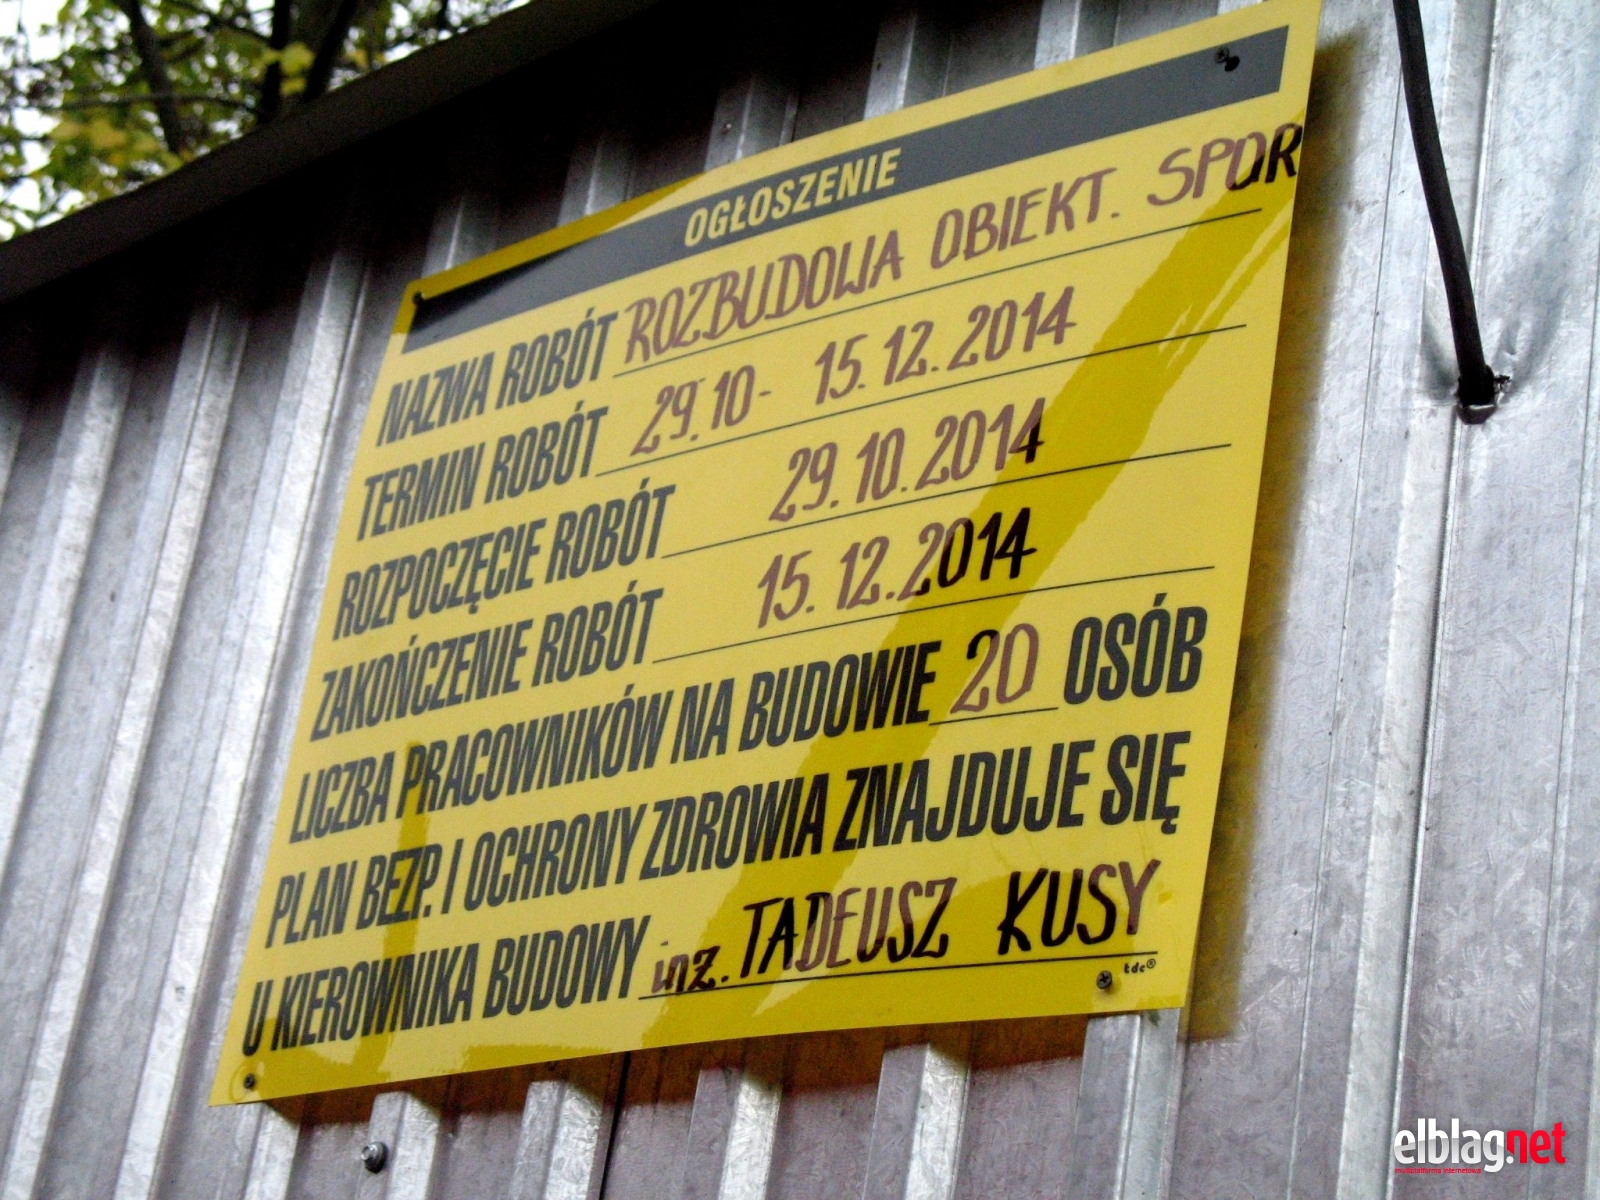 OGŁOSZENIE
NAZWA ROBÓT ROZBUDOWA OBIEKT. SPOR
TERMIN ROBÓT 29.10 - 15.12.2014
ROZPOCZĘCIE ROBÓT 29.10.2014
ZAKOŃCZENIE ROBÓT 15.12.2014
LICZBA PRACOWNIKÓW NA BUDOWIE 20 OSÓB
PLAN BEZP. I OCHRONY ZDROWIA ZNAJDUJE SIĘ
U KIEROWNIKA BUDOWY inż. TADEUSZ KUSY
tdc®
elblag.net
multiplatforma internetowa